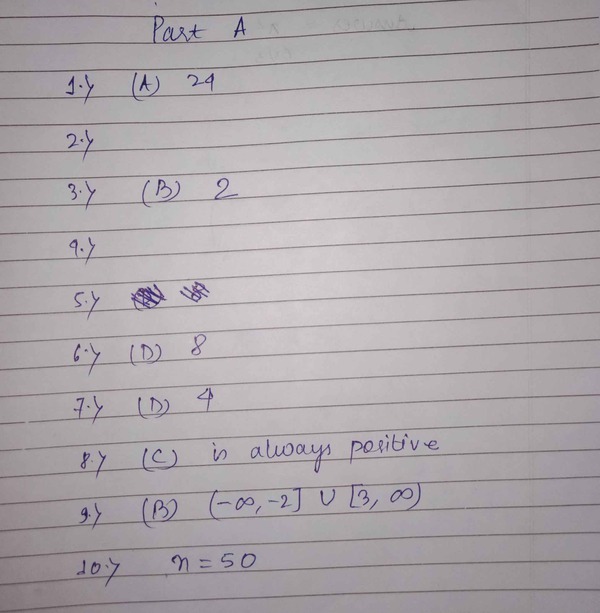 Part A
1.) (A) 24
2.)
3.) (B) 2
4.)
5.)
6.) (D) 8
7.) (D) 4
8.) (C) is always positive
9.) (B) (-∞, -2] ∪ [3, ∞)
10.) n = 50